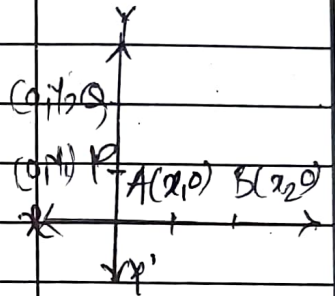 Y
(0,Y₂) Q
(0,Y₁) P
A(x,0) B(x₂0)
X
Y'